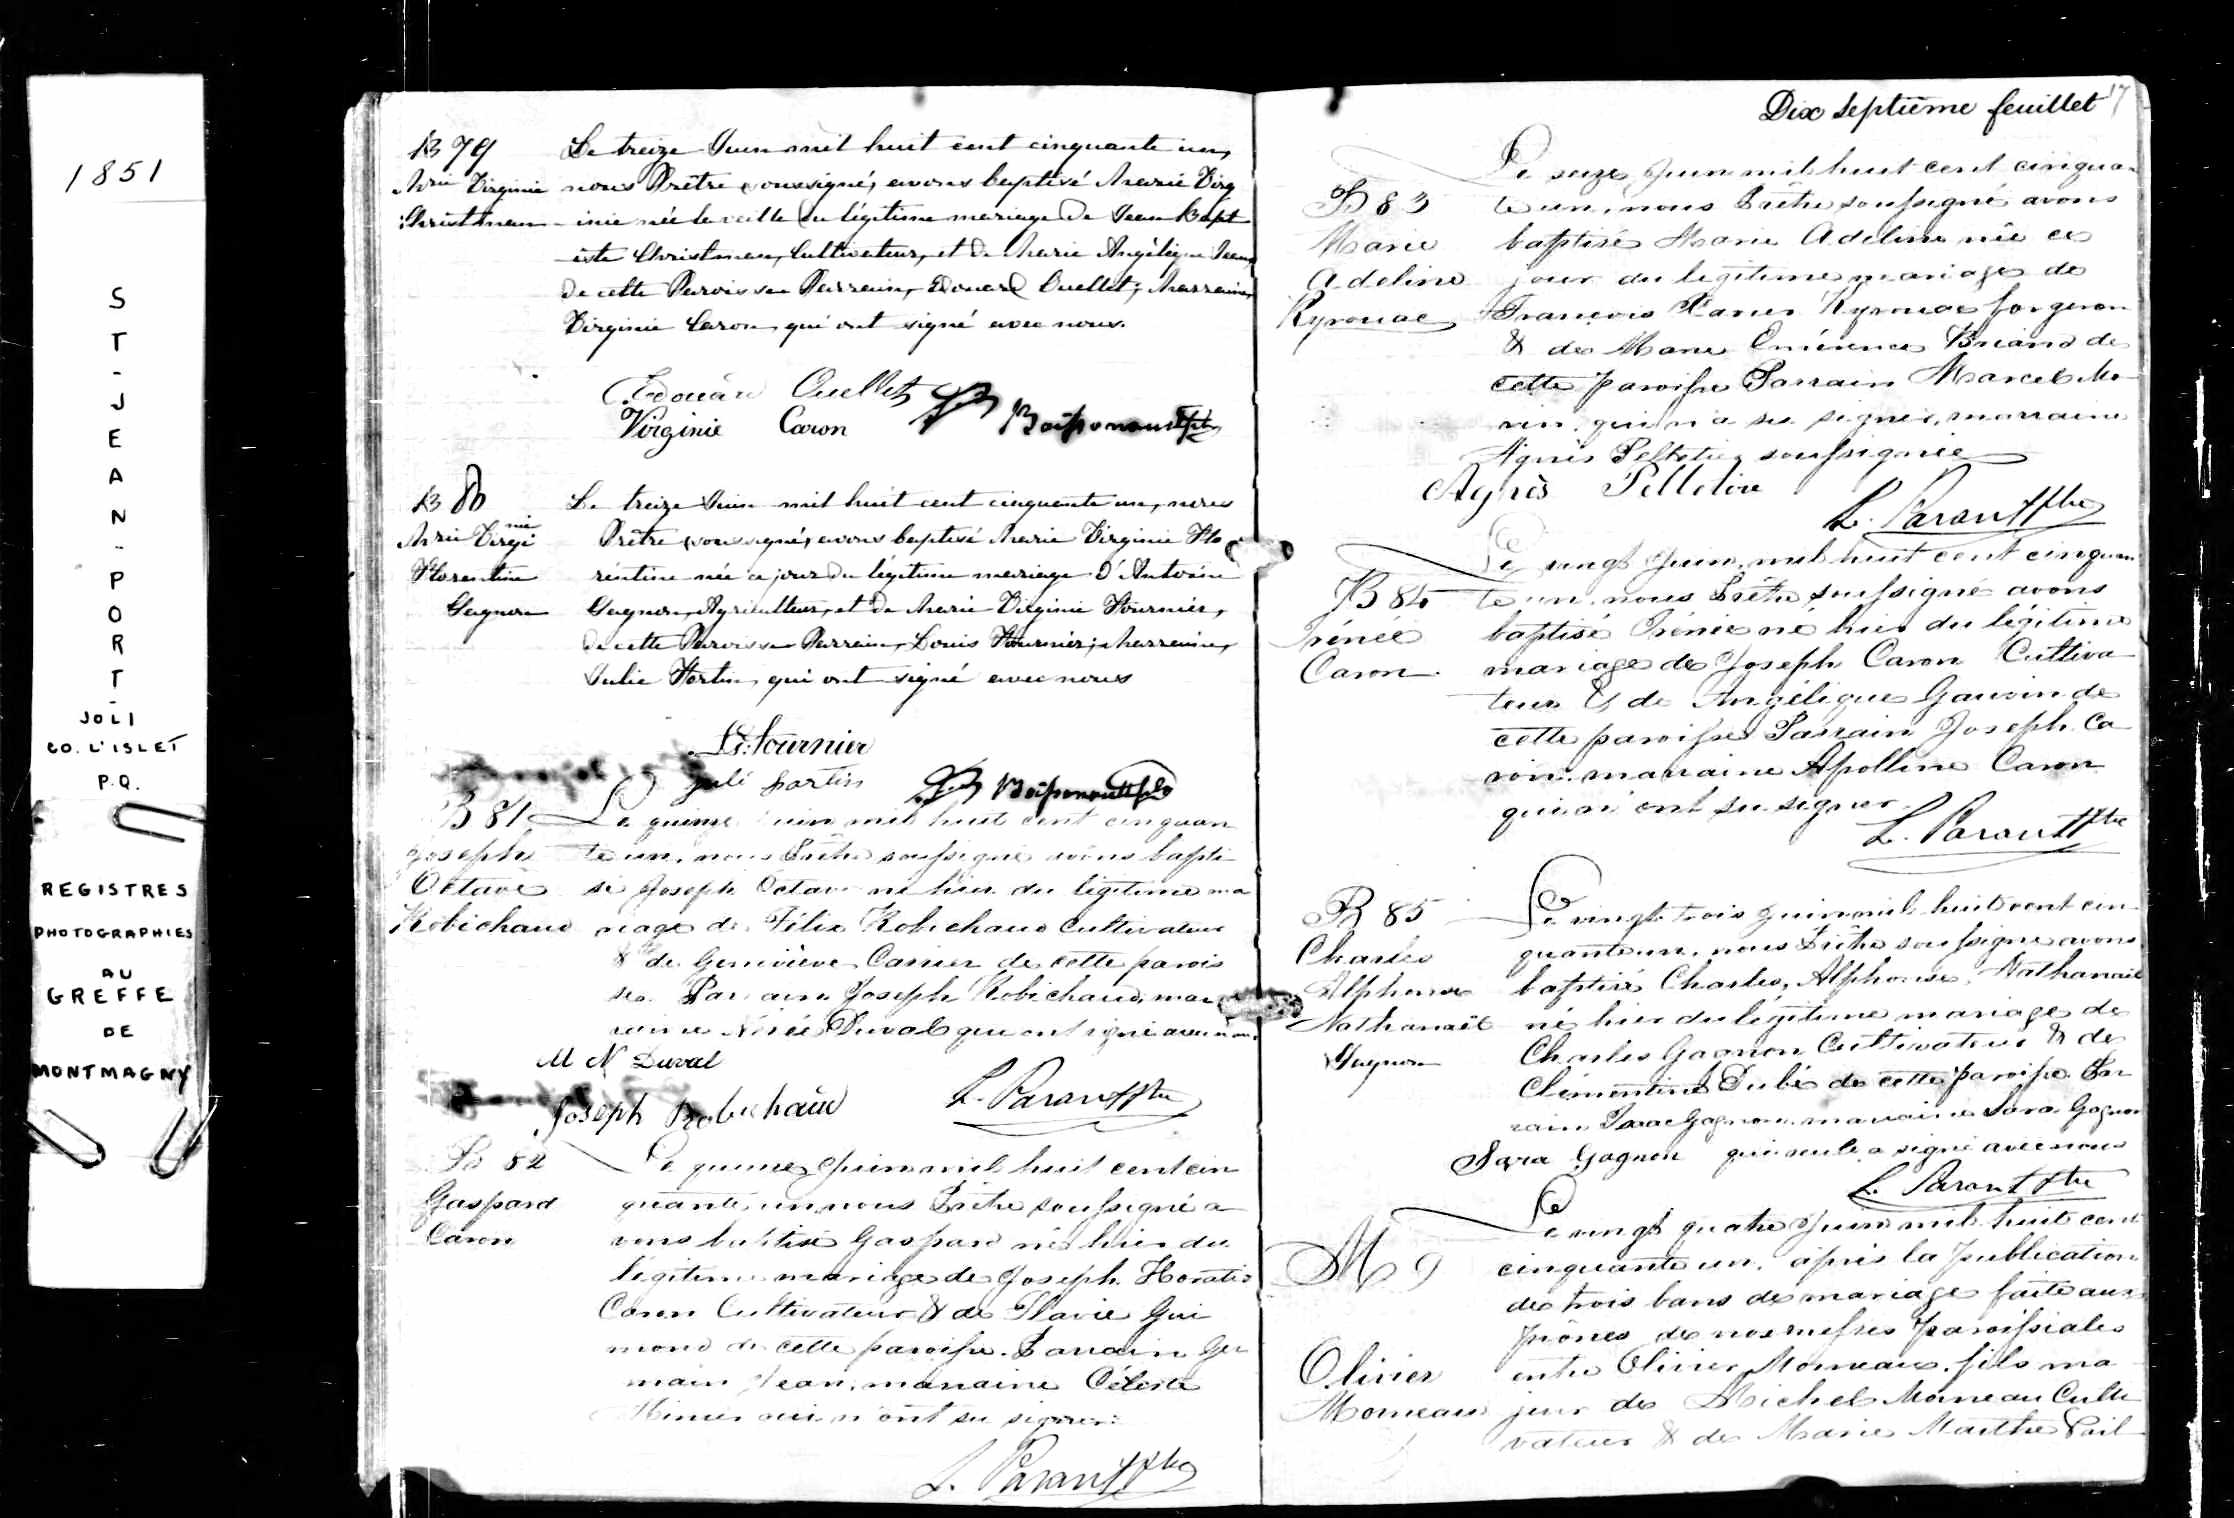 1851
S
T
-
J
E
A
N
-
P
O
R
T
-
JOLI
CO. L'ISLET
P.Q.
REGISTRES
PHOTOGRAPHIES
AU
GREFFE
DE
MONTMAGNY
B 79
Mrie Virginie
Christmen
Le treize Juin mil huit cent cinquante un,
nous Prêtre soussigné, avons baptisé Marie Virg
-inie née la veille du légitime mariage de Jean Bapt
-iste Christmen, Cultivateur, et de Marie Angélique Jean,
de cette Paroisse Parrain, Edouard Ouellet; Marraine,
Virginie Caron, qui ont signé avec nous.
Edouard Ouellet
Virginie Caron
B 80
Mrie Virgi
nie
Florentine
Gagnon
Le treize Juin mil huit cent cinquante un, nous
Prêtre soussigné, avons baptisé Marie Virginie Flo
rentine née ce jour du légitime mariage d'Antoine
Gagnon, Agriculteur, et de Marie Virginie Fournier,
de cette Paroisse Parrain, Louis Fournier; Marraine,
Julie Fortin, qui ont signé avec nous
Ls. Fournier
Julé fortin
B 81
Joseph
Octave
Robichaud
Le quinze Juin mil huit cent cinquan
te un, nous Prêtre soussigné avons bapti
sé Joseph Octave né hier du légitime ma
riage de Félix Robichaud Cultivateur
& de Geneviève Carrier de cette parois
se. Parrain Joseph Robichaud, mar
raine Duval qui ont signé avec nous
M N Duval
Joseph Robichaud
L. Parant Ptre
B 82
Gaspard
Caron
Le quinze Juin mil huit cent cin
quante un, nous Prêtre soussigné a
vons baptisé Gaspard né hier du
légitime mariage de Joseph Horatio
Caron Cultivateur & de Flavie Gui
mond de cette paroisse. Parrain Ger
main Jean, marraine Céleste
qui n'ont su signer.
L. Parant Ptre
Dix septième feuillet
17
B 83
Marie
Adeline
Kyrouac
Le seize Juin mil huit cent cinquan
te un, nous Prêtre soussigné avons
baptisé Marie Adeline née ce
jour du légitime mariage de
François Xavier Kyrouac forgeron
& de Marie Emérence Briand de
cette paroisse Parrain Marcel Mo
rin, qui n'a su signer, marraine
Agnès Pelletier soussignée
Agnès Pelletier
L. Parant Ptre
B 84
Irénée
Caron
Le vingt Juin mil huit cent cinquan
te un, nous Prêtre soussigné avons
baptisé Irénée né hier du légitime
mariage de Joseph Caron Cultiva
teur & de Angélique Gauvin de
cette paroisse Parrain Joseph Ca
ron, marraine Apolline Caron
qui n'ont su signer.
L. Parant Ptre
B 85
Charles
Alphonse
Nathanaël
Gagnon
Le vingt trois Juin mil huit cent cin
quante un, nous Prêtre soussigné avons
baptisé Charles, Alphonse, Nathanaël
né hier du légitime mariage de
Charles Gagnon Cultivateur & de
Clémentine Dubé de cette paroisse. Par
rain Isaac Gagnon, marraine Sara Gagnon
Sara Gagnon qui seule a signé avec nous
L. Parant Ptre
M 9
Olivier
Morneau
Le vingt quatre Juin mil huit cent
cinquante un, après la publication
de trois bans de mariage faite aux
prônes de nos messes paroissiales
entre Olivier Morneau, fils ma
jeur de Michel Morneau Culti
vateur & de Marie Marthe Pail